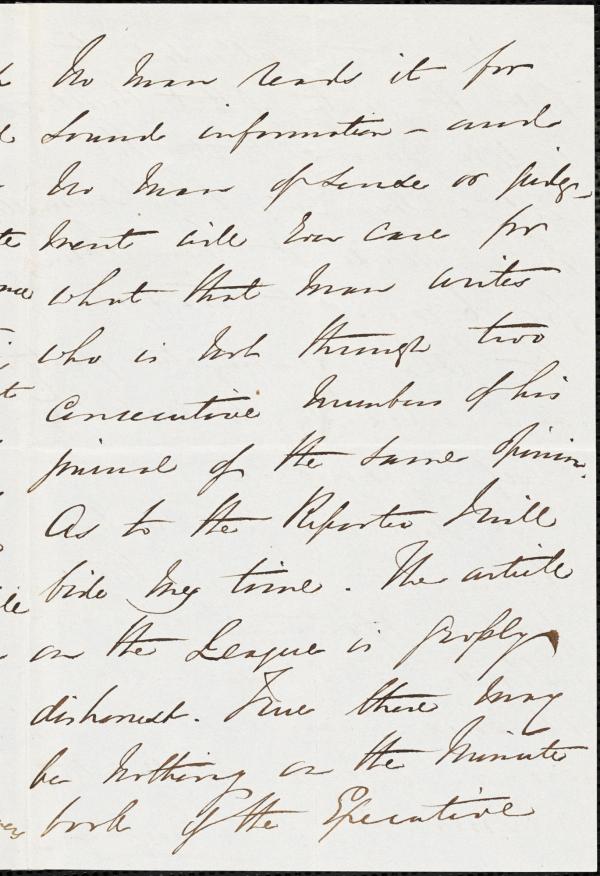 No man reads it for
sound information - and
no man of sense or judg-
ment will ever care for
what that man writes
who is not through two
consecutive numbers of his
journal of the same opinion.
As to the Reporter I will
bide my time. The article
on the League is grossly
dishonest. True there may
be nothing on the minute
book of the Executive